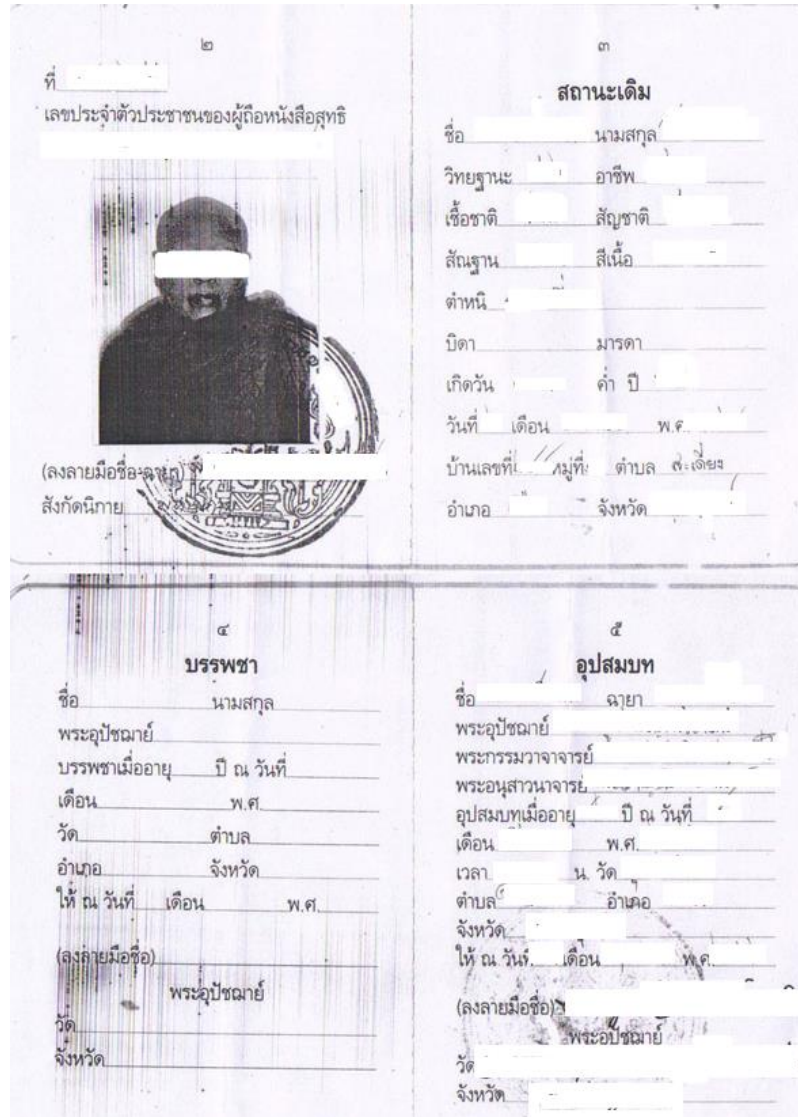 ๒
ที่
เลขประจำตัวประชาชนของผู้ถือหนังสือสุทธิ
(ลงลายมือชื่อ-ฉายา)
สังกัดนิกาย
๓
สถานะเดิม
ชื่อ นามสกุล
วิทยฐานะ อาชีพ
เชื้อชาติ สัญชาติ
สัณฐาน สีเนื้อ
ตำหนิ
บิดา มารดา
เกิดวัน ค่ำ ปี
วันที่ เดือน พ.ศ.
บ้านเลขที่ หมู่ที่ ตำบล สะเดียง
อำเภอ จังหวัด
๔
บรรพชา
ชื่อ นามสกุล
พระอุปัชฌาย์
บรรพชาเมื่ออายุ ปี ณ วันที่
เดือน พ.ศ.
วัด ตำบล
อำเภอ จังหวัด
ให้ ณ วันที่ เดือน พ.ศ.
(ลงลายมือชื่อ)
พระอุปัชฌาย์
วัด
จังหวัด
๕
อุปสมบท
ชื่อ ฉายา
พระอุปัชฌาย์
พระกรรมวาจาจารย์
พระอนุสาวนาจารย์
อุปสมบทเมื่ออายุ ปี ณ วันที่
เดือน พ.ศ.
เวลา น. วัด
ตำบล อำเภอ
จังหวัด
ให้ ณ วันที่ เดือน พ.ศ.
(ลงลายมือชื่อ)
พระอุปัชฌาย์
วัด
จังหวัด